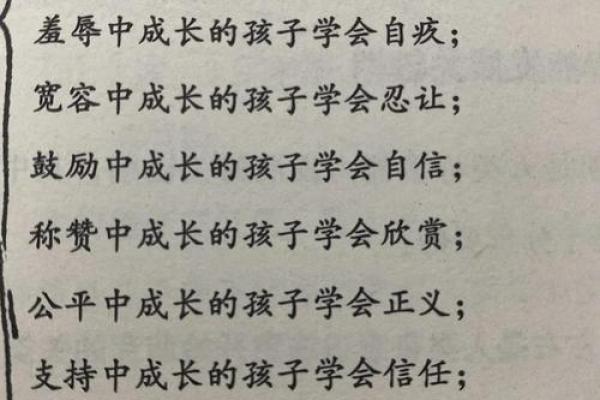 羞辱中成长的孩子学会自疚；
宽容中成长的孩子学会忍让；
鼓励中成长的孩子学会自信；
称赞中成长的孩子学会欣赏；
公平中成长的孩子学会正义；
支持中成长的孩子学会信任；